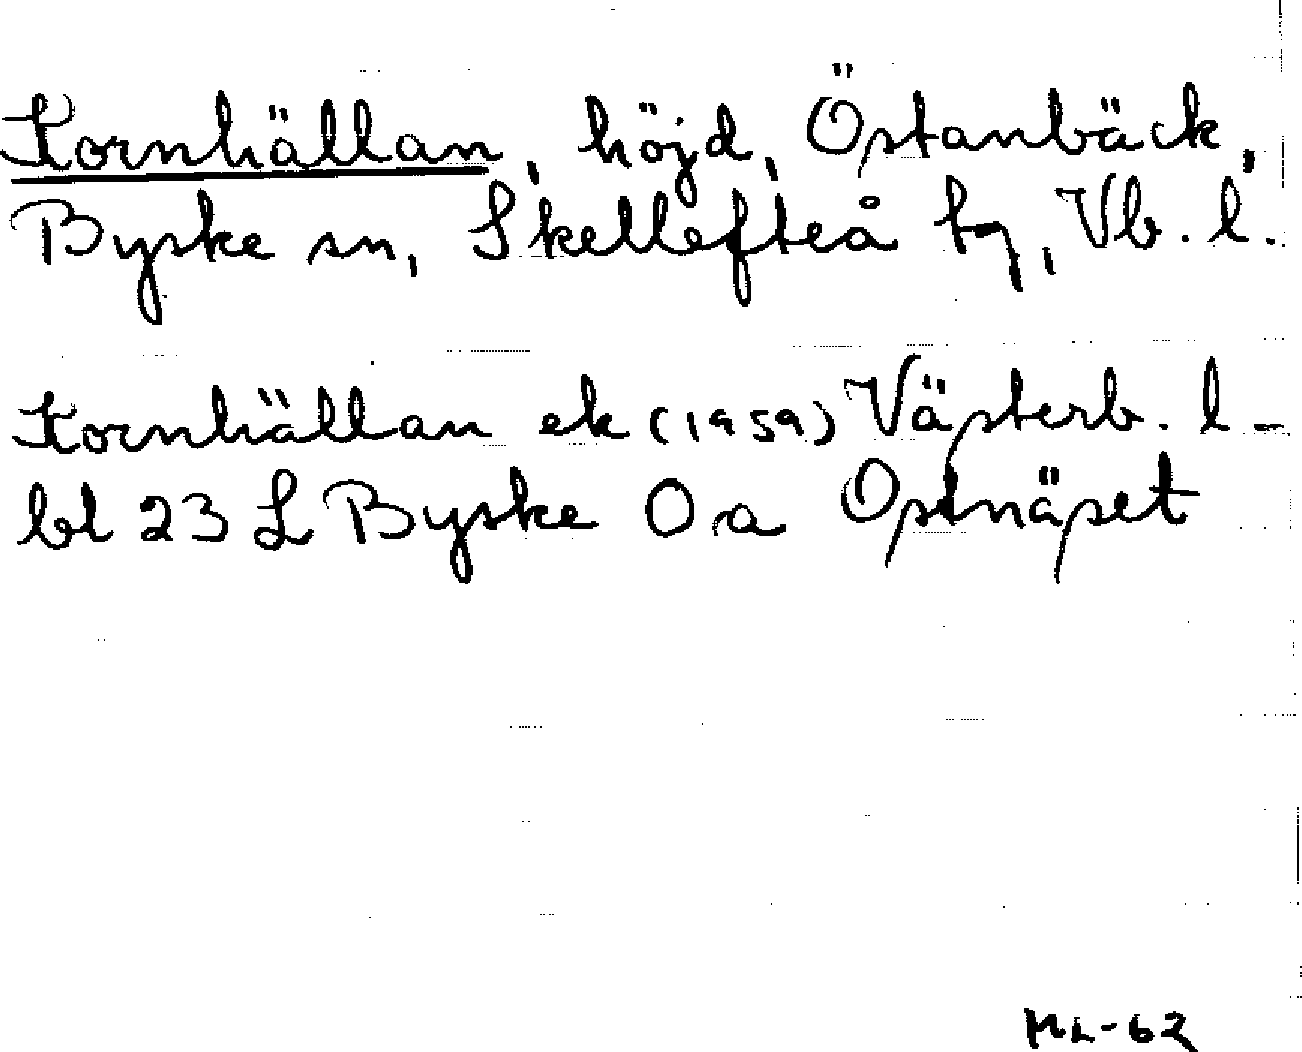 Kornhällan, höjd, Östanbäck,
Byske sn, Skellefteå tg, Vb. l.
Kornhällan ek (1959) Västerb. l-
bl 23 L Byske O.a Ostnäset
ML-62